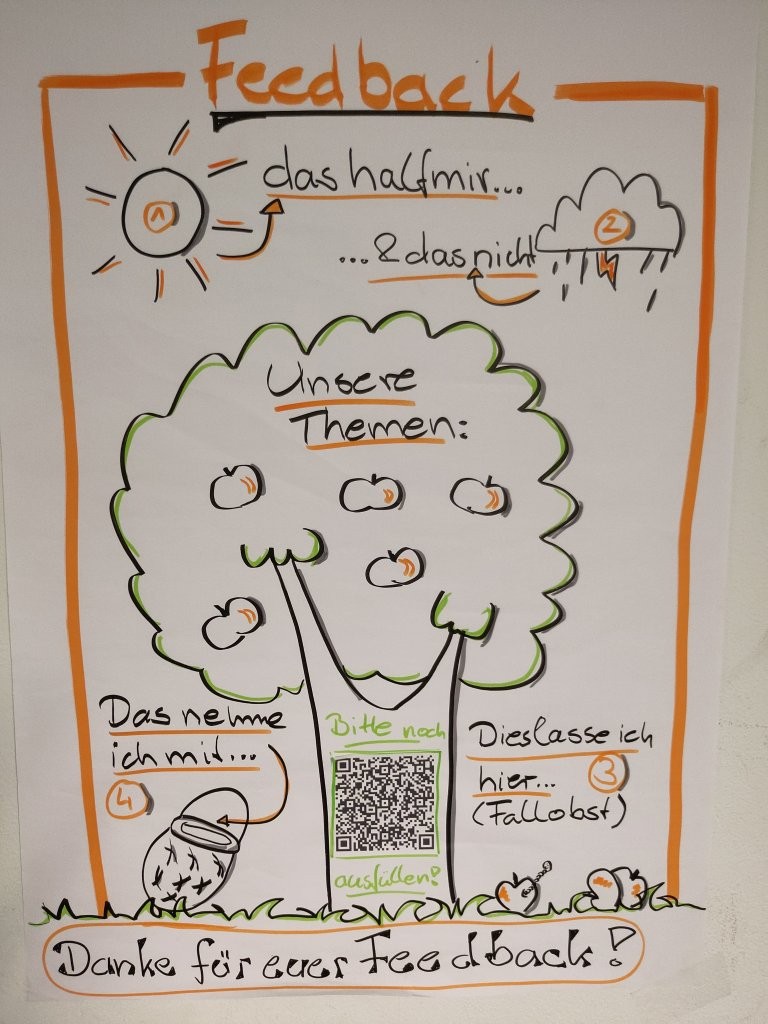 Feedback
1
das half mir...
2
...& das nicht
Unsere
Themen:
Das nehme
ich mit...
4
Bitte noch
ausfüllen!
Dies lasse ich
hier... 3
(Fallobst)
Danke für euer Feedback!